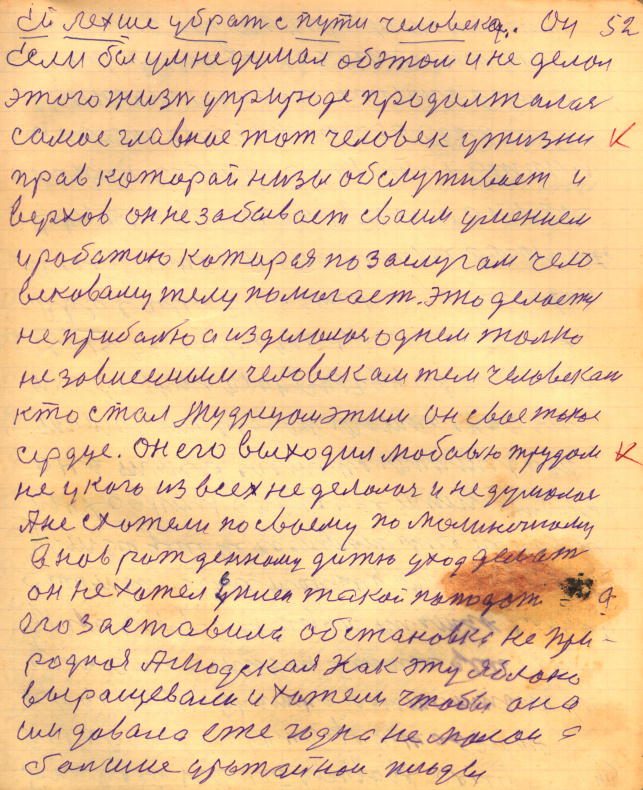 Ей лехше убрат с пути человека. Он 52
Если бы ум не думал об этом и не делол
этого жизн у природе продолжалас
самое главное тот человек у жизни К
прав которай низы обслуживает и
верхов он не забывает своим умением
и работою которая по заслугам чело-
вековаму телу помогает. Это делоется
не прибалю а изделолос однем толко
не зовисемым человекам тем человекам
кто стал Мудрецом этим он свае такое
сердце. Он его выходил любовью трудом К
не у кого из всех не делолос и не думолос
А не схотели по своему по
А нов рожденному дитю уход делат
он не хотел такой
его заставила обстановка не при-
родноя А людская Как эту яблоню
выращевали и хотели чтобы она
им довала еже годна не мало а
болшие урожайнои плоды